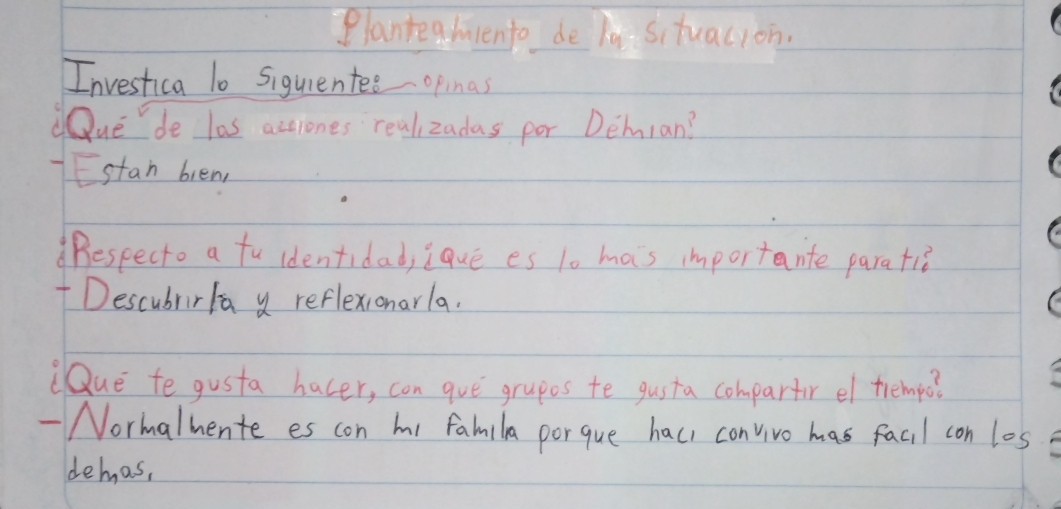 Planteamiento de la situación.
Investica lo siguiente: opinas
¿Qué de las acciones realizadas por Démian?
- Estan bien,
¿Respecto a tu identidad, ¿qué es lo más importante para ti?
- Descubrirla y reflexionarla.
¿Qué te gusta hacer, con qué grupos te gusta compartir el tiempo?
- Normalmente es con mi familia porque haci convivo mas facil con los
demas,